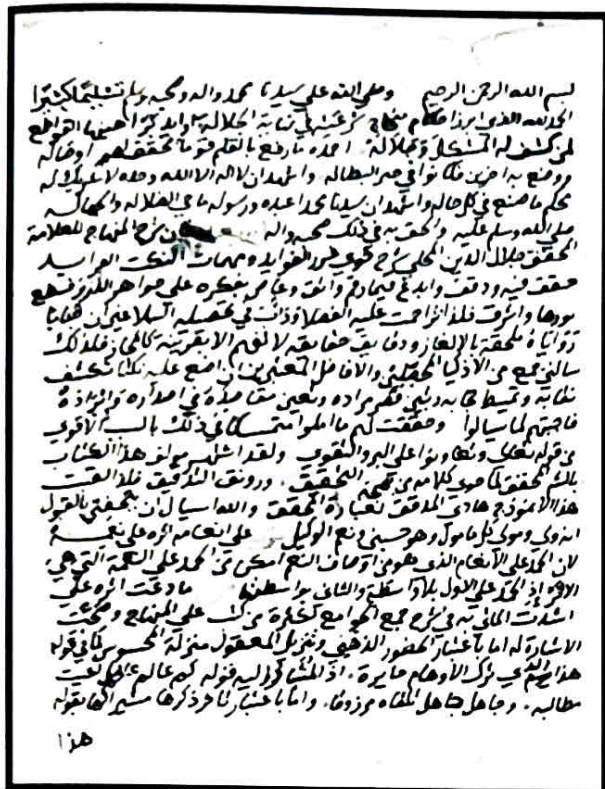 بسم الله الرحمن الرحيم وصلى الله على سيدنا محمد واله وصحبه وسلم تسليما كثيرا
الحمد لله الذي ابرز احكام منهاج شرعيته
لمن كشف له المشكل وجلاله احمده ما رفع بالقلم قوما تحقق لهم اوضاله
ووضع به اخرين فكانوا في حيز البطالة واشهد ان لا اله الا الله وحده لا شريك له
محكم ما صنع في كل حاله واشهد ان سيدنا محمدا عبده ورسوله ماحي الضلالة والجهالة
صلى الله وسلم عليه والحق به في ذلك صحبه واله شرح المنهاج للعلامة
المحقق جلال الدين المحلي شرح حوى من الفوايد ومهمات النكت الفرايد
حقق فيه ودقق وابدع فيما رقم وانق وغاص بفكره على جواهر الدرر فسطع
نورها واشرق فلذا تزاحمت عليه الفضلا وذابت في تحصيله النبلا غير ان خفايا
زواياه ملحقة بالالغاز ودقايق حقايقه لا تفهم الا بقرينة كالمجاز فلذلك
سالني جمع من الاذكيا المحصلين والافاضل المعتبرين ان اضع عليه نكتا تكشف
نقابه وتميط حجابه وتبين مراده وتعين مقاصده في اصداره وايراده
فاجبتهم لما سيالوا وحققت لهم ما املوا متمسكا في ذلك بالسبب الاقوى
من قوله تعالى وتعاونوا على البر والتقوى ولقد اشتهر مولف هذا الكتاب
بالشرح المحقق لما حوى كلامه من التحقيق ورونق التدقيق فلذا لقبت
هذا الانموذج هادي المدقق لعبارة المحقق والله اسيال ان يتحفني بالقبول
انه ولي ومولي كل مامول وهو حسبي ونعم الوكيل على انعامه اثره على نعمه
لان الحمد على الانعام الذي هو من اوصاف المنعم امكن من الحمد على النعمة التي هي
الاثر اذ الحمد على الاول بلا واسطة والثاني بواسطة ما دعت اثره على
اشتدت الماتي به في شرح جمع الجوامع لكثرة من كتب على المنهاج وصحت
الاشارة له اما باعتبار الحضور الذهني وتنزيل المعقول منزلة المحسوس كما في قوله
هذا الذي ترك الاوهام حايرة اذ المشار اليه قوله كم عالم عالم اعيت
مطالبه وجاهل جاهل تلقاه مرزوقا واما باعتبار تاخر ذكرها مشيرا لها بقوله
هذا